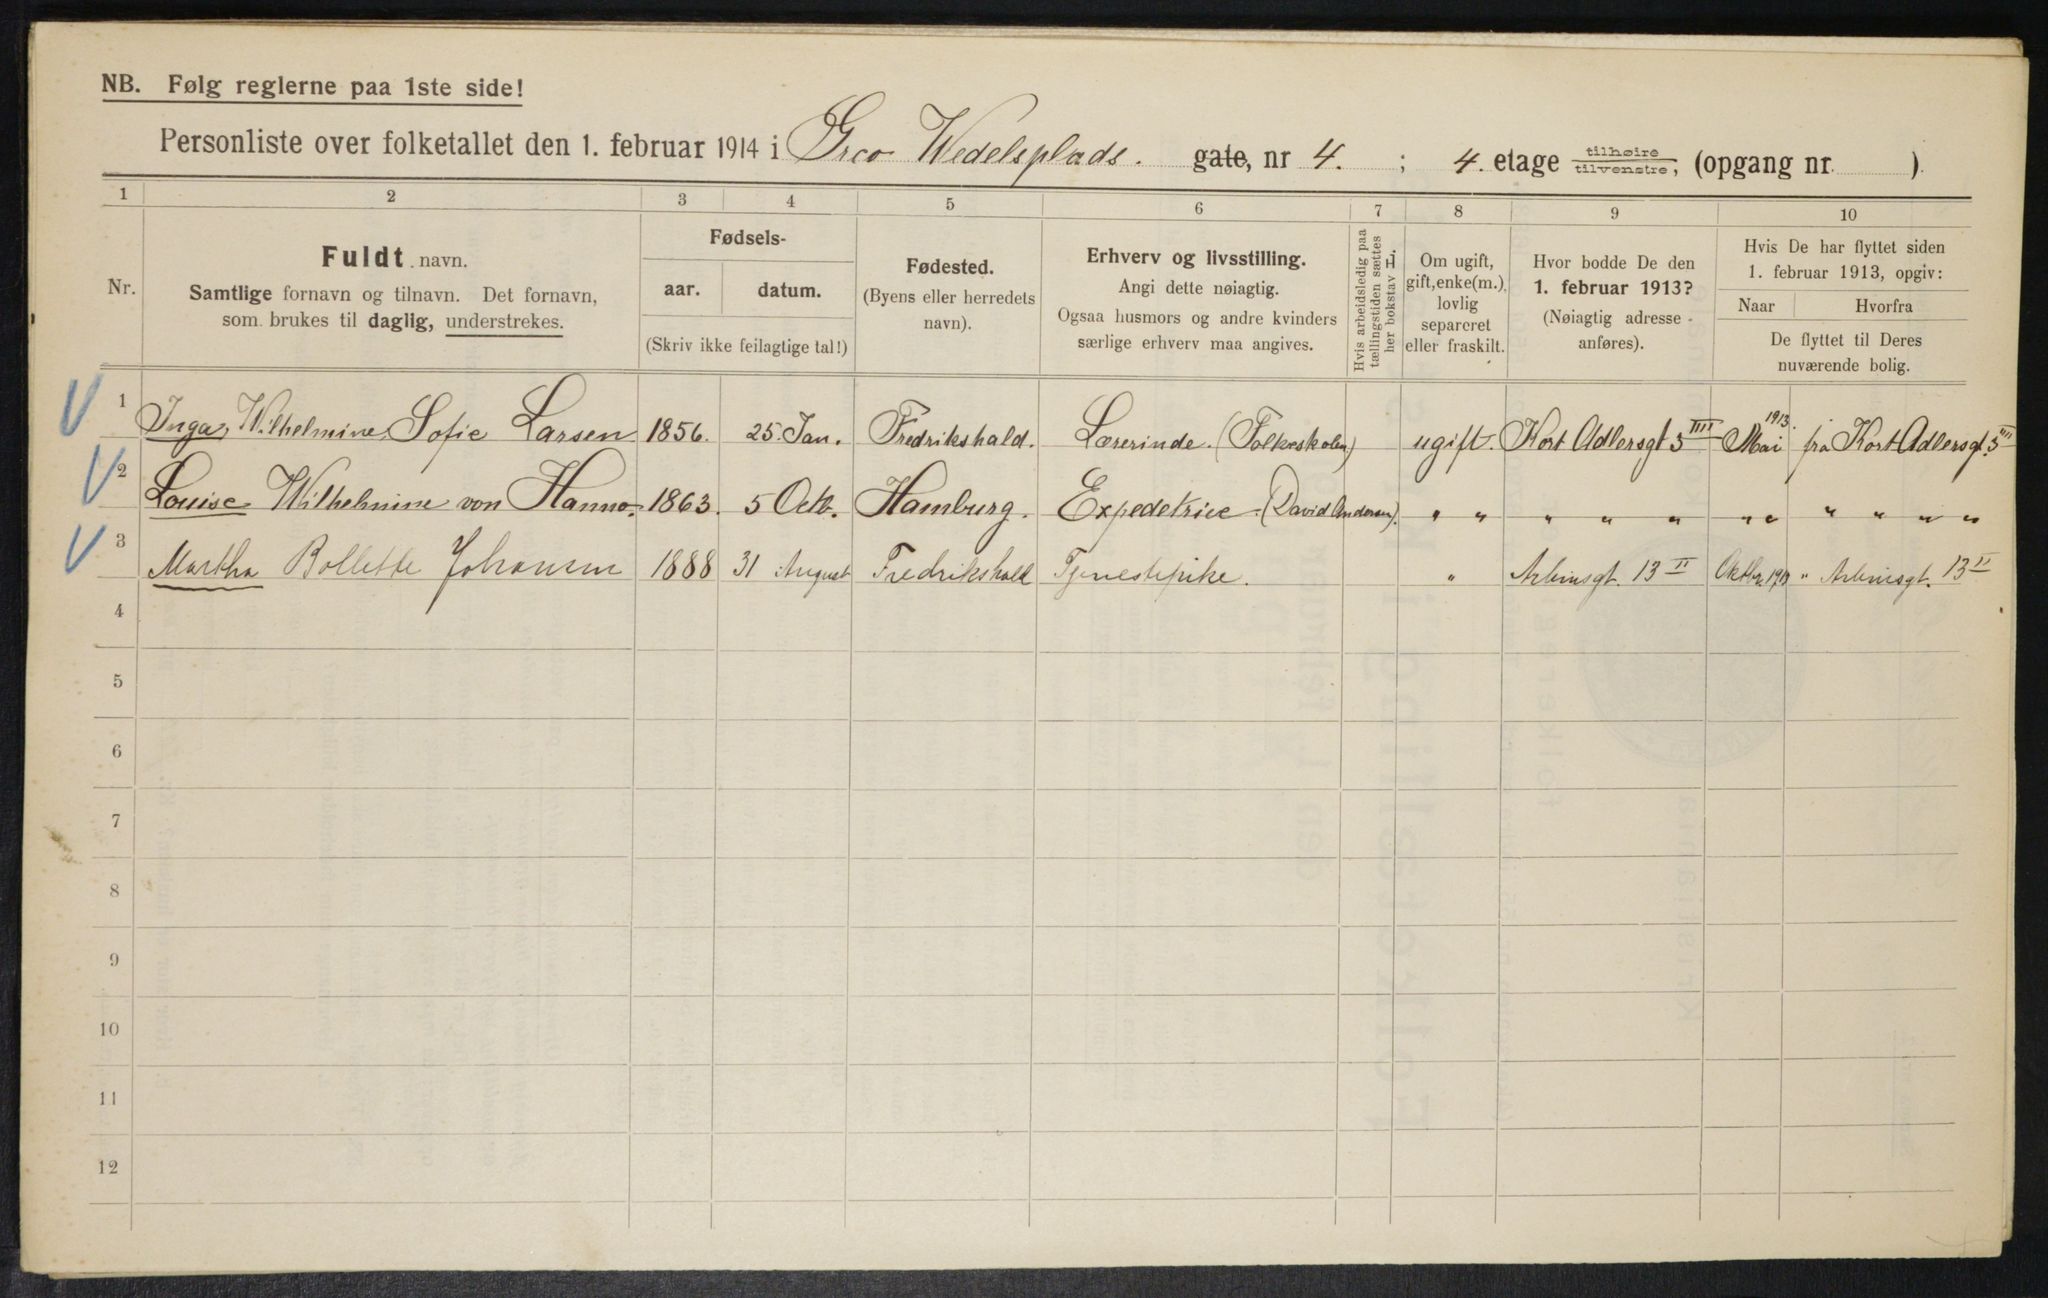 NB. Følg reglerne paa 1ste side!
Personliste over folketallet den 1. februar 1914 i Grev Wedelsplads. gate, nr 4. ; 4. etage tilhøire/tilvenstre, (opgang nr. ).
1 2 3 4 5 6 7 8 9 10
Nr.
Fuldt navn.
Samtlige fornavn og tilnavn. Det fornavn,
som brukes til daglig, understrekes.
Fødsels-
aar. datum.
(Skriv ikke feilagtige tal!)
Fødested.
(Byens eller herredets
navn).
Erhverv og livsstilling.
Angi dette nøiagtig.
Ogsaa husmors og andre kvinders
særlige erhverv maa angives.
Hvis arbeidsledig paa
tællingstiden sættes
her bokstav L.
Om ugift,
gift, enke(m.),
lovlig
separeret
eller fraskilt.
Hvor bodde De den
1. februar 1913?
(Nøiagtig adresse
anføres).
Hvis De har flyttet siden
1. februar 1913, opgiv:
Naar Hvorfra
De flyttet til Deres
nuværende bolig.
1 Inga, Wilhelmine, Sofie Larsen 1856. 25. Jan. Fredrikshald. Lærerinde. (Folkeskolen) ugift. Kort Adlersgt 5 IIII Mai 1913. fra Kort Adlersgt. 5 IIII
2 Louise Wilhelmine von Hanno. 1863. 5 Octb. Hamburg. Expedetrice. (David Andersen). " " " " " " " " " " "
3 Martha Bollette Johansen 1888 31 August Fredrikshald Tjenestepike. " Arbinsgt. 13 II Oktbr. 1913 " Arbinsgt. 13 II
4
5
6
7
8
9
10
11
12